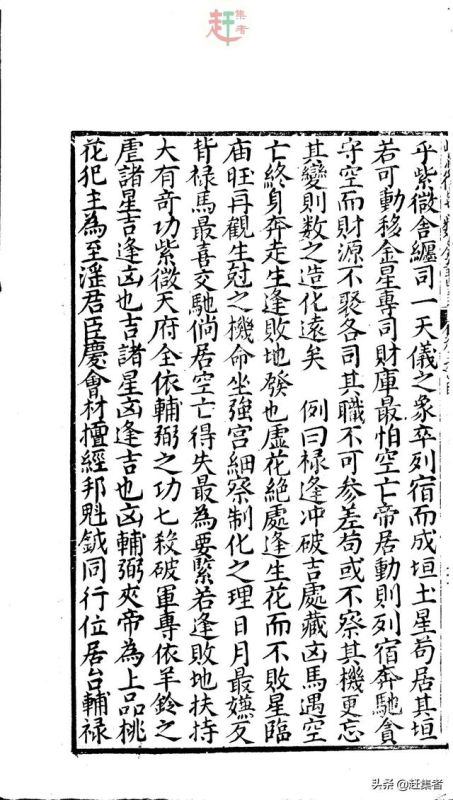 赶集者
乎紫微舍纏司一天儀之象卒列宿而成垣土星苟居其垣
若可動移金星專司財庫最怕空亡帝居動則列宿奔馳貪
守空而財源不聚各司其職不可參差苟或不察其機更忘
其變則数之造化遠矣　例曰禄逢冲破吉處藏凶馬遇空
亡終身奔走生逢敗地發也虛花絶處逢生花而不敗星臨
庙旺再觀生尅之機命坐強宫細察制化之理日月最嫌反
背禄馬最喜交馳倘居空亡得失最為要緊若逢敗地扶持
大有奇功紫微天府全依輔弼之功七殺破軍專依羊鈴之
虐諸星吉逢凶也吉諸星凶逢吉也凶輔弼夾帝為上品桃
花犯主為至滛君臣慶會材擅經邦魁鉞同行位居台輔禄
头条 @赶集者